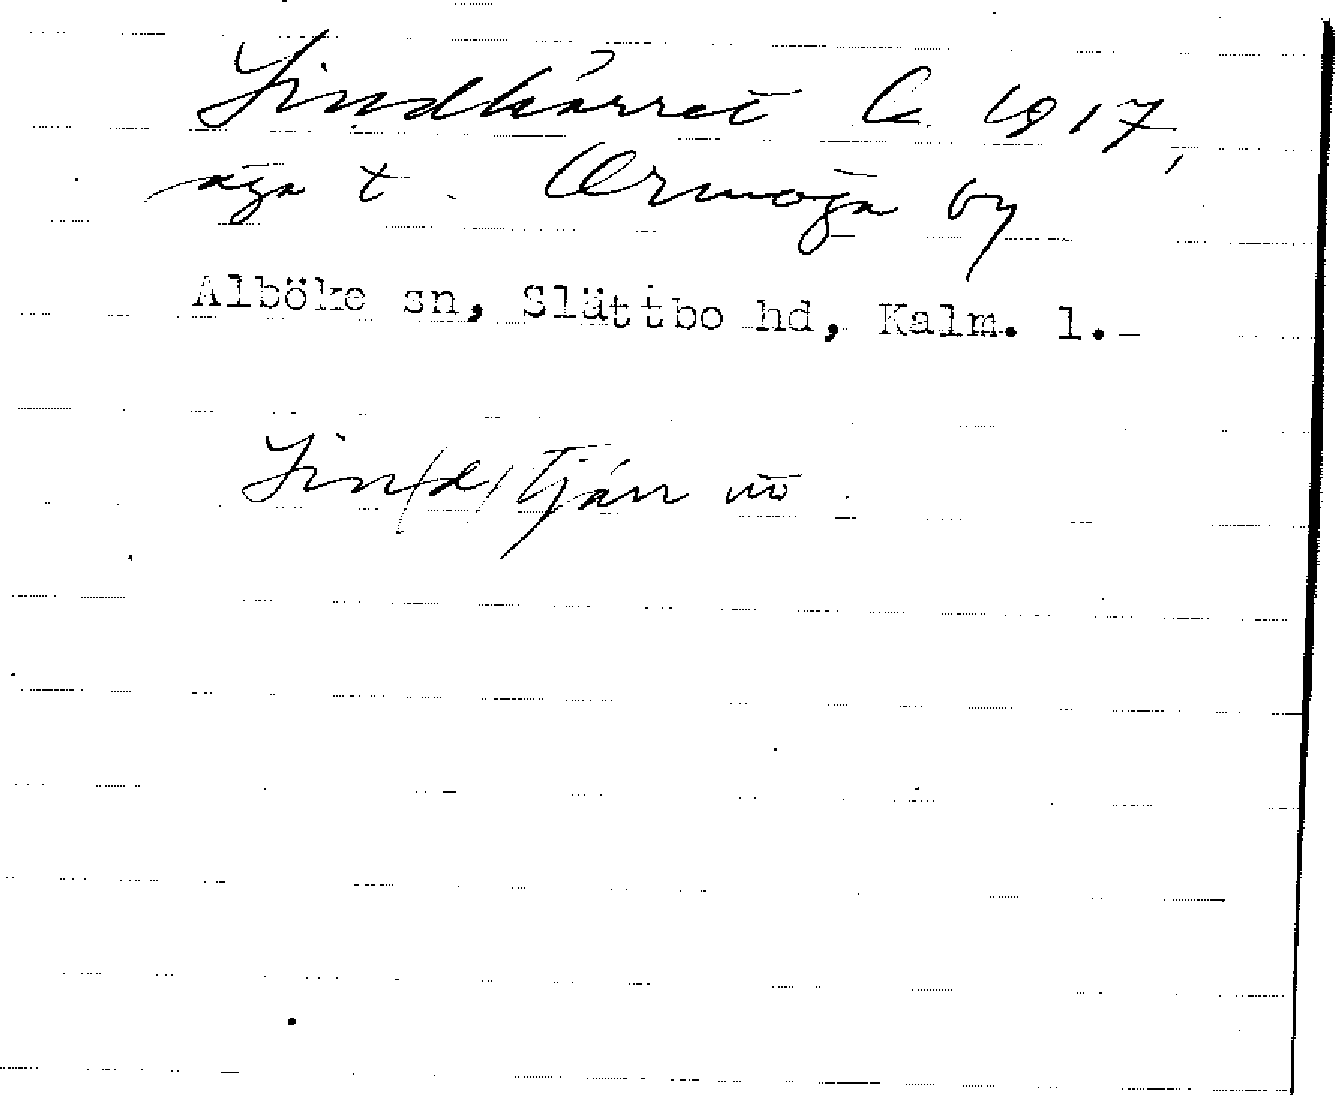 Lindkärret C. 1917,
äga t. Örmöga by
Alböke sn, Slättbo hd, Kalm. l.-
Lin(d)tjärr